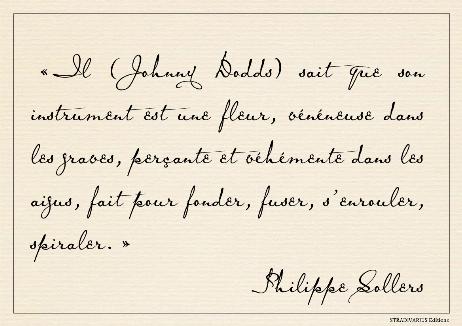 « Il (Johnny Dodds) sait que son
instrument est une fleur, vénéneuse dans
les graves, perçante et véhémente dans les
aigus, fait pour fonder, fuser, s'enrouler,
spiraler. »
Philippe Sollers
STRADIVARIUS Editions